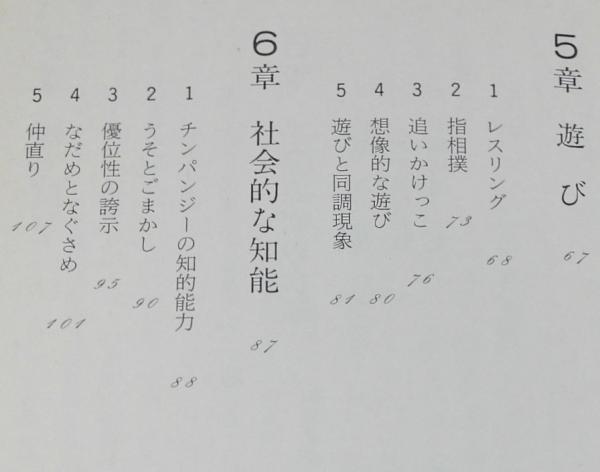 5章 遊び 67
1 レスリング 68
2 指相撲 73
3 追いかけっこ 76
4 想像的な遊び 80
5 遊びと同調現象 81
6章 社会的な知能 87
1 チンパンジーの知的能力 88
2 うそとごまかし 90
3 優位性の誇示 95
4 なだめとなぐさめ 101
5 仲直り 107